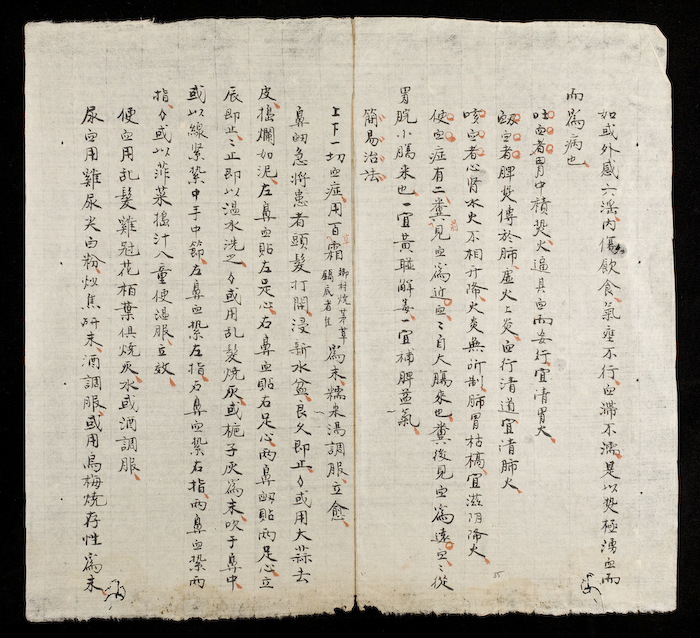 如或外感六淫內傷飲食氣壅不行血滯不濡是以熱極湧血而
而爲病也
吐血者胃中積熱火逼其血而妄行宜清胃火
衂血者脾熱傳於肺虛火上炎血行清道宜清肺火
咳血者心腎水火不相升降火炎無所制肺胃枯槁宜滋阴降火
便血症有二糞前見血爲近血々自大膓來也糞後見血爲遠血々從
胃脘小膓來也一宜黄連解毒一宜補脾益氣
簡易治法
上下一切血症用百霜 鄉村燒茅草鍋底者佳 爲末糯米湯調服立愈
鼻衂急將患者頭髮打開浸新水盆良久即止々或用大蒜去
皮搗爛如泥左鼻血貼左足心右鼻血貼右足心两鼻衂貼两足心立
辰即止々止即以温水洗之々或用乱髮燒灰或梔子灰爲末吹于鼻中
或以線紧紮中手中節左鼻血紮左指右鼻血紮右指两鼻血紮两
指々或以韮菜搗汁入童便温服立效
便血用乱髮雞冠花栢葉俱燒灰水或酒調服
尿血用雞尿尖白粉炒焦研末酒調服或用烏梅燒存性爲末